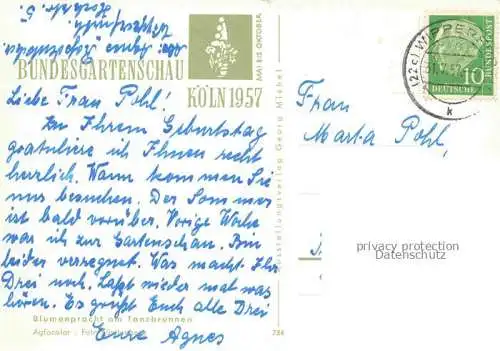 BUNDESGARTENSCHAU
MAI BIS OKTOBER
KÖLN 1957
Liebe Frau Pohl!
Zu Ihrem Geburtstag
gratuliere ich Ihnen recht
herzlich. Wann kommen Sie
uns besuchen. Der Sommer
ist bald vorüber. Vorige Woche
war ich zur Gartenschau. Bin
leider verregnet. Was macht Ihr
Drei noch. Laßt wieder mal was
hören. Es grüßt Euch alle Drei
Eure Agnes
Blumenpracht am Tanzbrunnen
Agfacolor:
734
Ausstellungsverlag Georg Michel
Frau
Marta Pohl,
(22c) WIPPERF
k
10
DEUTSCHE
BUNDESPOST
privacy protection
Datenschutz